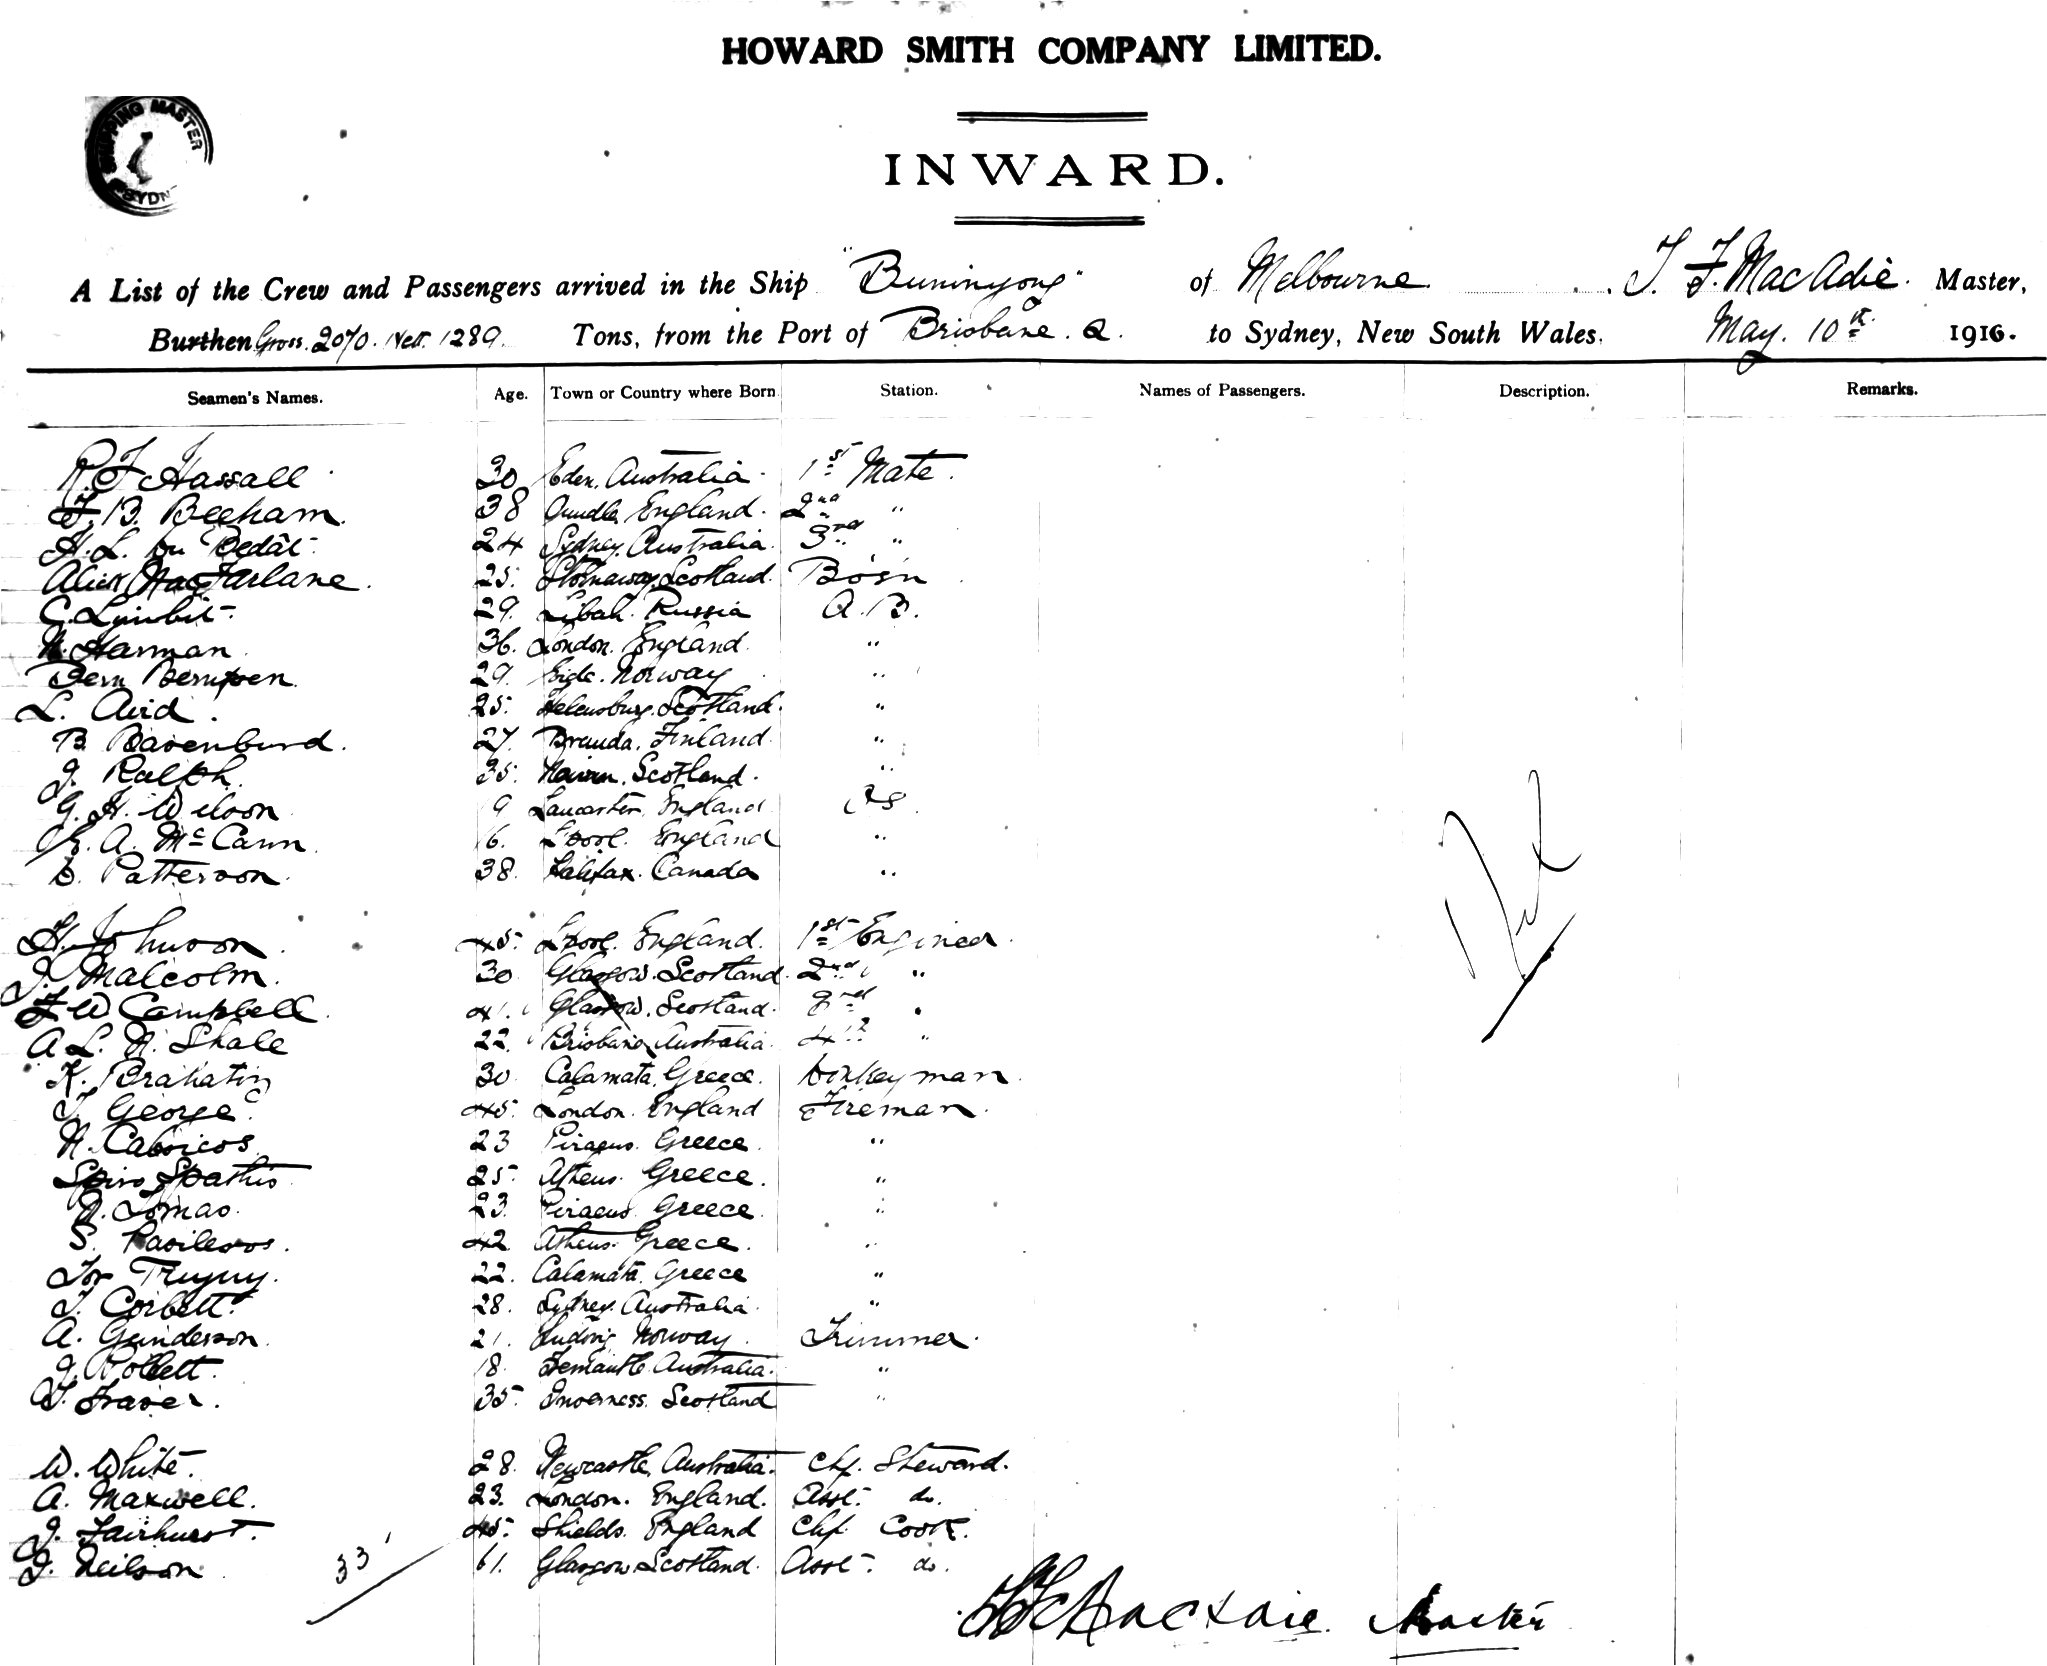 HOWARD SMITH COMPANY LIMITED.
SHIPPING MASTER
SYDN
INWARD.
A List of the Crew and Passengers arrived in the Ship "Buninyong" of Melbourne T. F. MacAdie. Master,
Burthen Gross. 2070. Nett. 1289. Tons, from the Port of Brisbane. Q. to Sydney, New South Wales. May. 10th 1916.
Seamen's Names. Age. Town or Country where Born Station. Names of Passengers. Description. Remarks.
R. F Hassall 30 Eden. Australia. 1st Mate.
F. B. Beeham. 38 England. 2nd "
H. L. Du Bedât. 24 Sydney. Australia. 3rd "
Alick MacFarlane. 25. Stornaway. Scotland. Bosn
C. Limbit. 29. Libau. Russia A. B.
Harman. 36. London. England. "
Bern Berntsen. 29. Norway "
L. Auid. 25. Helensburg. Scotland. "
B. 27. Finland. "
J. Ralph. 35. Nairn. Scotland. "
G. H. Wilson 9 Lancaster. England OS
A. McCann. 6. L'pool. England "
D. Patterson. 38. Halifax. Canada "
H. Johnson. 45. L'pool. England. 1st Engineer.
J. Malcolm. 30 Glasgow. Scotland. 2nd "
F W Campbell. 41. Glasgow. Scotland. 3rd "
A L. N. Shale 22. Brisbane Australia. 4th "
K. 30 Calamata. Greece. Donkeyman.
T. George. 45. London. England Fireman.
N. Cassicos. 23 Piraeus. Greece. "
Spiro Spathis 25. Athens. Greece. "
Lomas. 23. Piraeus. Greece. "
S. Vasilesos. 42. Athens. Greece. "
22. Calamata. Greece "
T. Corbett. 28. Sydney. Australia. "
A. Gunderson. 21. Norway. Trimmer.
J. Pollett. 18. Fremantle. Australia. "
T. Fraser. 35. Inverness. Scotland "
W. White. 28. Newcastle. Australia. Chf. Steward.
A. Maxwell. 23. London. England. Asst. do.
J. Fairhurst. 45. Shields. England Chf. Cook.
J. Neilson 33 61. Glasgow. Scotland. Asst. do.
Master